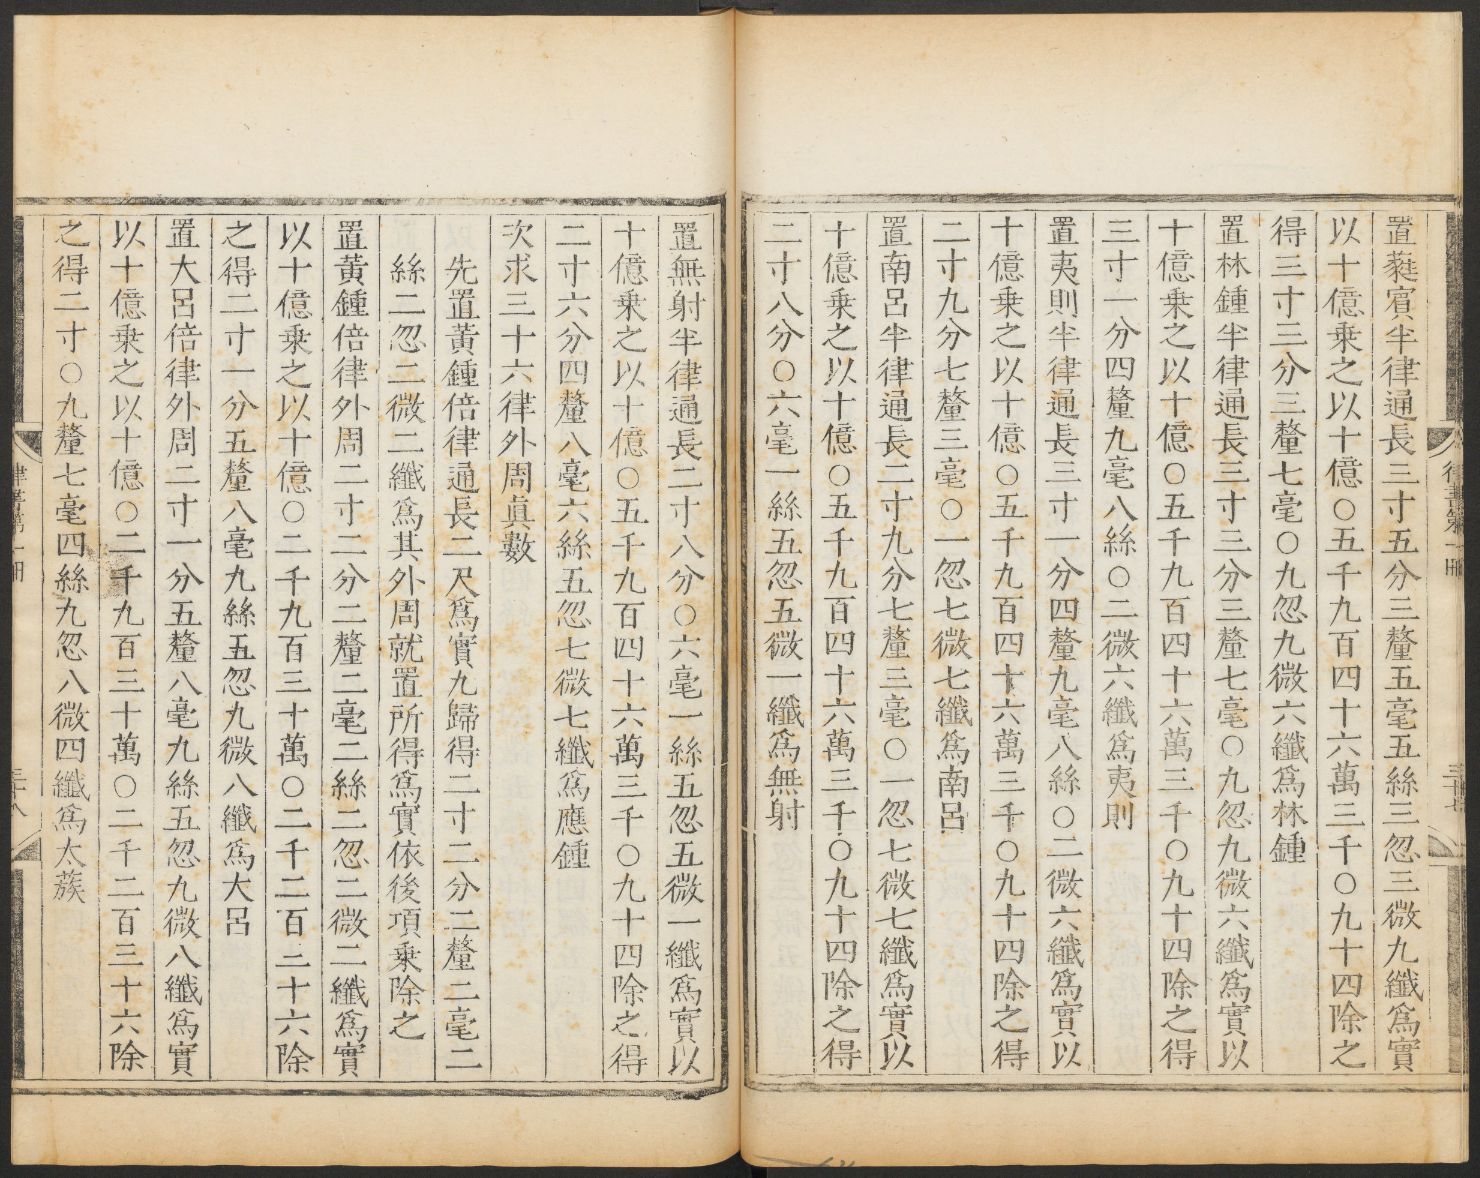 置蕤賓半律通長三寸五分三釐五毫五絲三忽三微九纖爲實
以十億乘之以十億〇五千九百四十六萬三千〇九十四除之
得三寸三分三釐七毫〇九忽九微六纖爲林鍾
置林鍾半律通長三寸三分三釐七毫〇九忽九微六纖爲實以
十億乘之以十億〇五千九百四十六萬三千〇九十四除之得
三寸一分四釐九毫八絲〇二微六纖爲夷則
置夷則半律通長三寸一分四釐九毫八絲〇二微六纖爲實以
十億乘之以十億〇五千九百四十六萬三千〇九十四除之得
二寸九分七釐三毫〇一忽七微七纖爲南呂
置南呂半律通長二寸九分七釐三毫〇一忽七微七纖爲實以
十億乘之以十億〇五千九百四十六萬三千〇九十四除之得
二寸八分〇六毫一絲五忽五微一纖爲無射
置無射半律通長二寸八分〇六毫一絲五忽五微一纖爲實以
十億乘之以十億〇五千九百四十六萬三千〇九十四除之得
二寸六分四釐八毫六絲五忽七微七纖爲應鍾
次求三十六律外周眞數
先置黃鍾倍律通長二尺爲實九歸得二寸二分二釐二毫二
絲二忽二微二纖爲其外周就置所得爲實依後項乘除之
置黃鍾倍律外周二寸二分二釐二毫二絲二忽二微二纖爲實
以十億乘之以十億〇二千九百三十萬〇二千二百三十六除
之得二寸一分五釐八毫九絲五忽九微八纖爲大呂
置大呂倍律外周二寸一分五釐八毫九絲五忽九微八纖爲實
以十億乘之以十億〇二千九百三十萬〇二千二百三十六除
之得二寸〇九釐七毫四絲九忽八微四纖爲太蔟
律書第一冊
三十七
律書第一冊
三十八